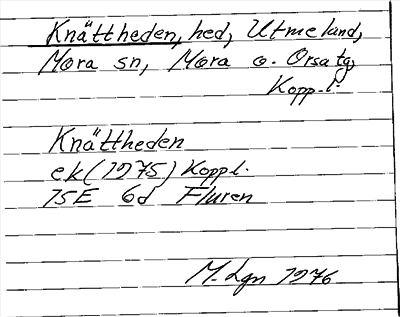 Knättheden, hed, Utmeland,
Mora sn, Mora o. Orsa tg,
Kopp.l.
Knättheden
ek (1975) Koppl.
15E 6d Fluren
M. Lgn 1976